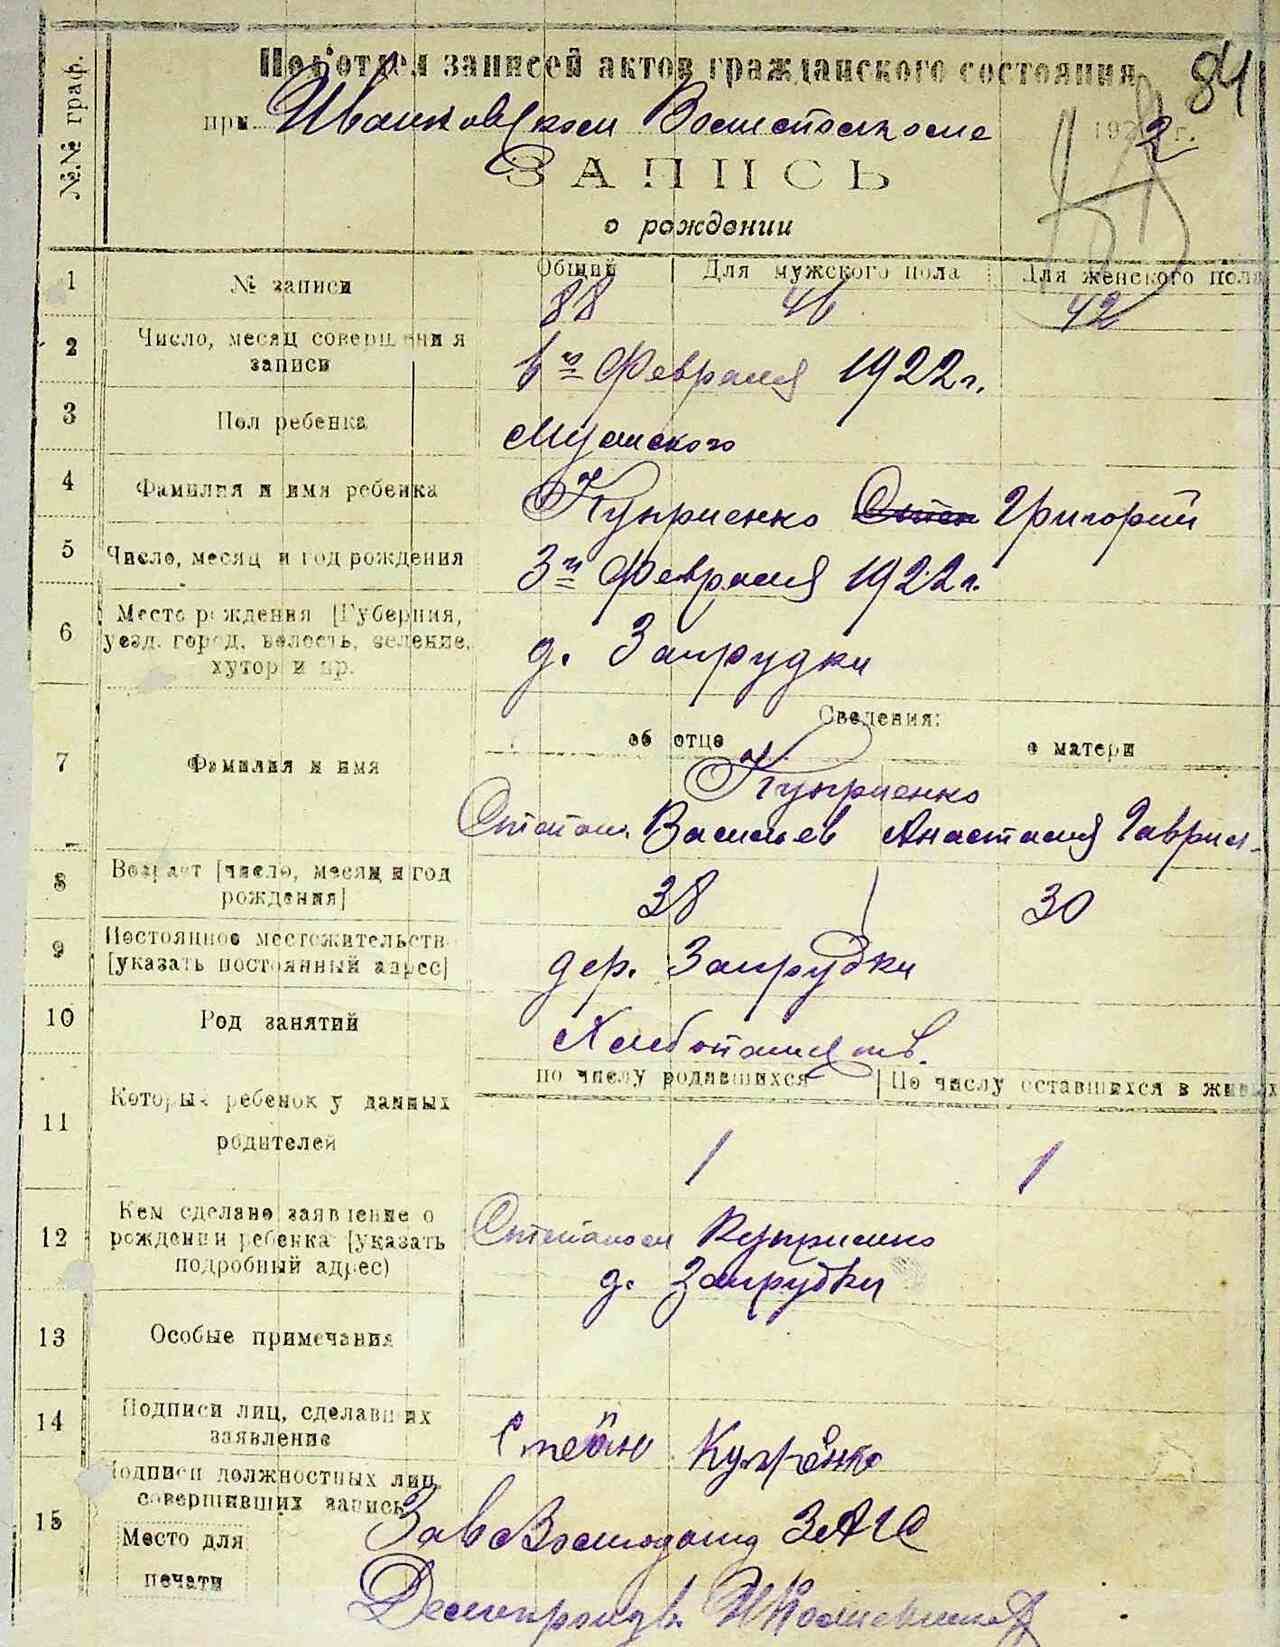 84
№.№ граф.
Подотдел записей актов гражданского состояния
при Иванковском Волисполкоме 1922 г.
ЗАПИСЬ
о рождении
1 № записи Общий Для мужского пола Для женского пола
88 46 42
2 Число, месяц совершения записи 6го Февраля 1922 г.
3 Пол ребенка Мужского
4 Фамилия и имя ребенка Куприенко Григорий
5 Число, месяц и год рождения 3го Февраля 1922 г.
6 Место рождения [Губерния,
уезд, город, волость, селение,
хутор и пр.
д. Запрудки
Сведения:
об отце о матери
7 Фамилия и имя Куприенко
Степан Васильев Анастасия Гаврил.
8 Возраст [число, месяц и год
рождения]
38 30
9 Постоянное местожительств
[указать постоянный адрес]
дер. Запрудки
10 Род занятий Хлебопашеств.
по числу родившихся По числу оставшихся в живых
11 Который ребенок у данных
родителей
1 1
12 Кем сделано заявление о
рождении ребенка [указать
подробный адрес)
Степаном Куприенко
д. Запрудки
13 Особые примечания
14 Подписи лиц, сделавших
заявление
Степан Купренко
15 Подписи должностных лиц,
совершивших запись
Зав ЗАГС
Место для
печати
Делопроизв.